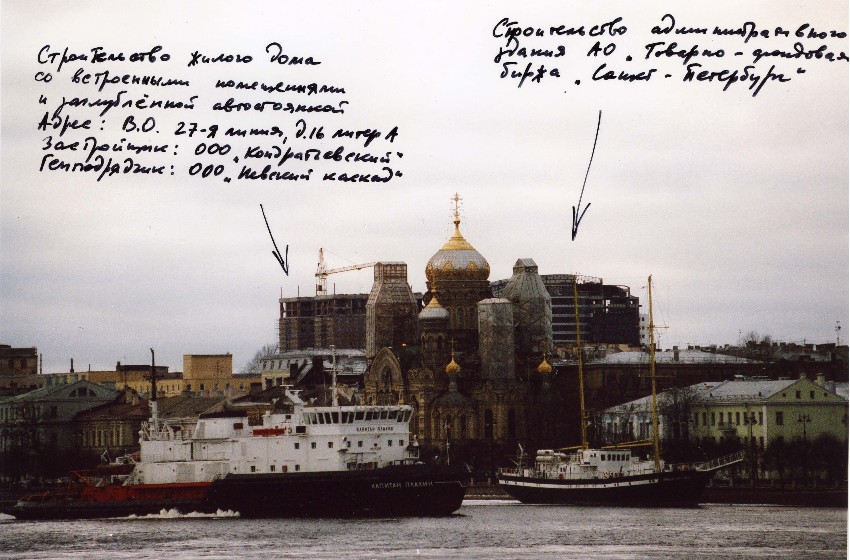 Строительство жилого дома
со встроенными помещениями
и заглублённой автостоянкой
Адрес: В.О. 27-я линия, д.16 литер А
Застройщик: ООО „Кондратьевский“
Генподрядчик: ООО „Невский каскад“
Строительство административного
здания АО „Товарно-фондовая
биржа „Санкт-Петербург“
КАПИТАН ПЛАХИН
КАПИТАН ПЛАХИН